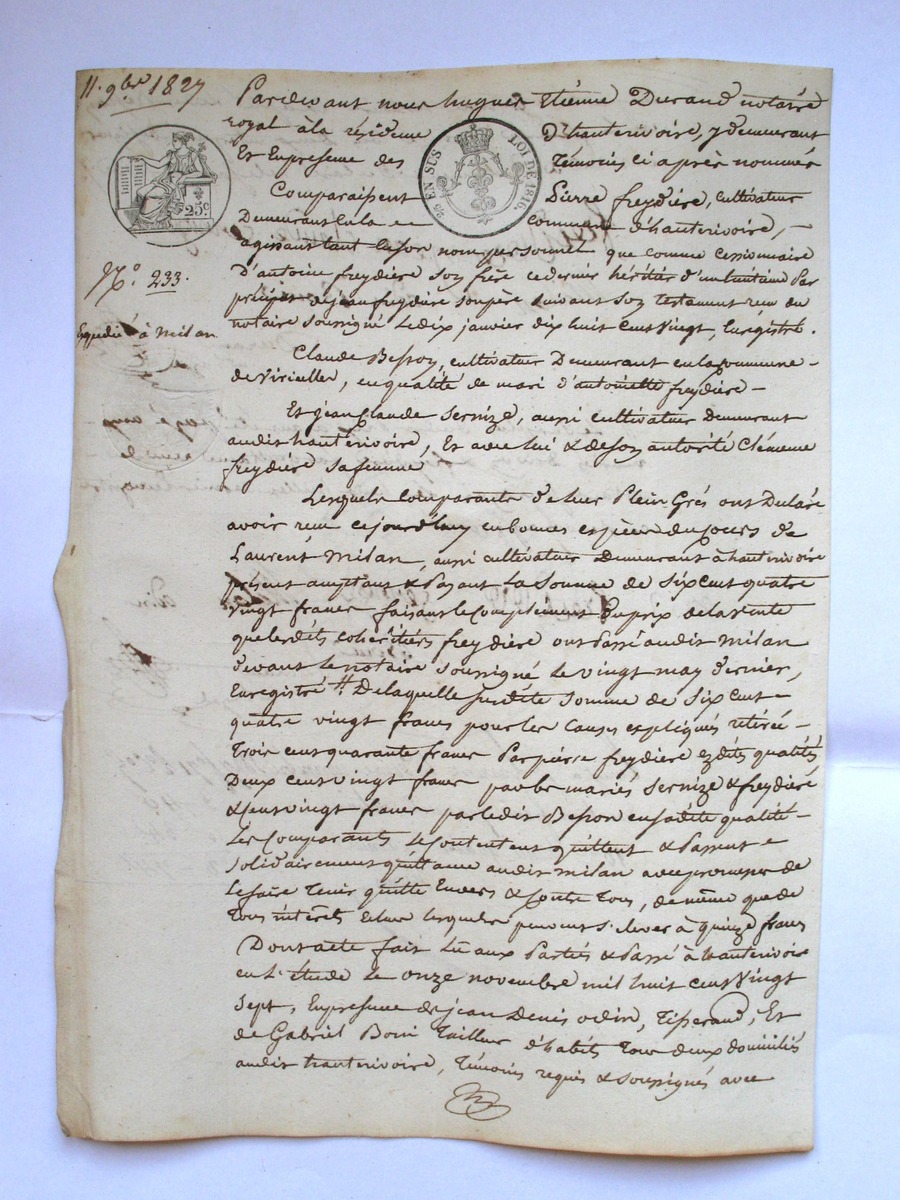 11. 9bre 1827
Pardevant nous hugues Etiénne Durand notaire
royal à la résidence D'hauterivoire, y demeurant
Et En presence des Témoins ci après nommés
25 EN SUS LOI DE 1816.
25c.
Comparaissent Pierre freydière, cultivateur
Demeurant en la commune d'hauterivoire,
agissant tant en son nom personnel que comme cessionnaire
No. 233.
D'antoine freydière son frère ce dernier héritier d'un tantième Par
préciput de jean freydière son père suivant son testament reçu du
Expedié à Milan
notaire soussigné Le dix janvier dix huit cent Vingt, Enregistré.
Claude Besson, cultivateur Demeurant en la commune
de Viricelles, en qualité de mari d'antoinette freydière
Et jean Claude Sernize, aussi cultivateur Demeurant
audit hauterivoire, Et avec lui & de son autorité Clémence
freydière sa femme
Lesquels Comparants de leur Plein Grés ont Déclaré
avoir reçu ce jourd'huy en bonnes espèces du cours de
Laurent Milan, aussi cultivateur Demeurant à hauterivoire
présent acceptant & Payant La Somme de Six cent quatre
vingt francs faisant le Complement du prix de la Vente
que lesdits cohéritiers freydière ont Passé audit Milan
devant le notaire soussigné Le vingt may dernier,
Enregistré De laquelle susdite Somme de Six cent
quatre vingt francs pour les Causes expliqués retirée
Trois cent quarante francs Par pierre freydière ezdites qualités
Deux cent vingt francs par les mariés Sernize & freydière
& Cent vingt francs par ledit Besson en sadite qualité
Les Comparants Se Contentent quittent & Passent
Solidairement quittance audit Milan avec promesse de
Le faire Tenir quitte Envers & Contre Tous, de même que de
Tous intérêts Echus lesquels peuvent S'élever à quinze francs
Dont acte fait Lu aux Parties & Passé à hauterivoire
en L'étude Le onze novembre mil huit cent Vingt
Sept, En presence de jean Denis odin, Tisserand, Et
de Gabriel Boni Tailleur d'habits Tous deux domiciliés
audit hauterivoire, Témoins requis & soussignés avec